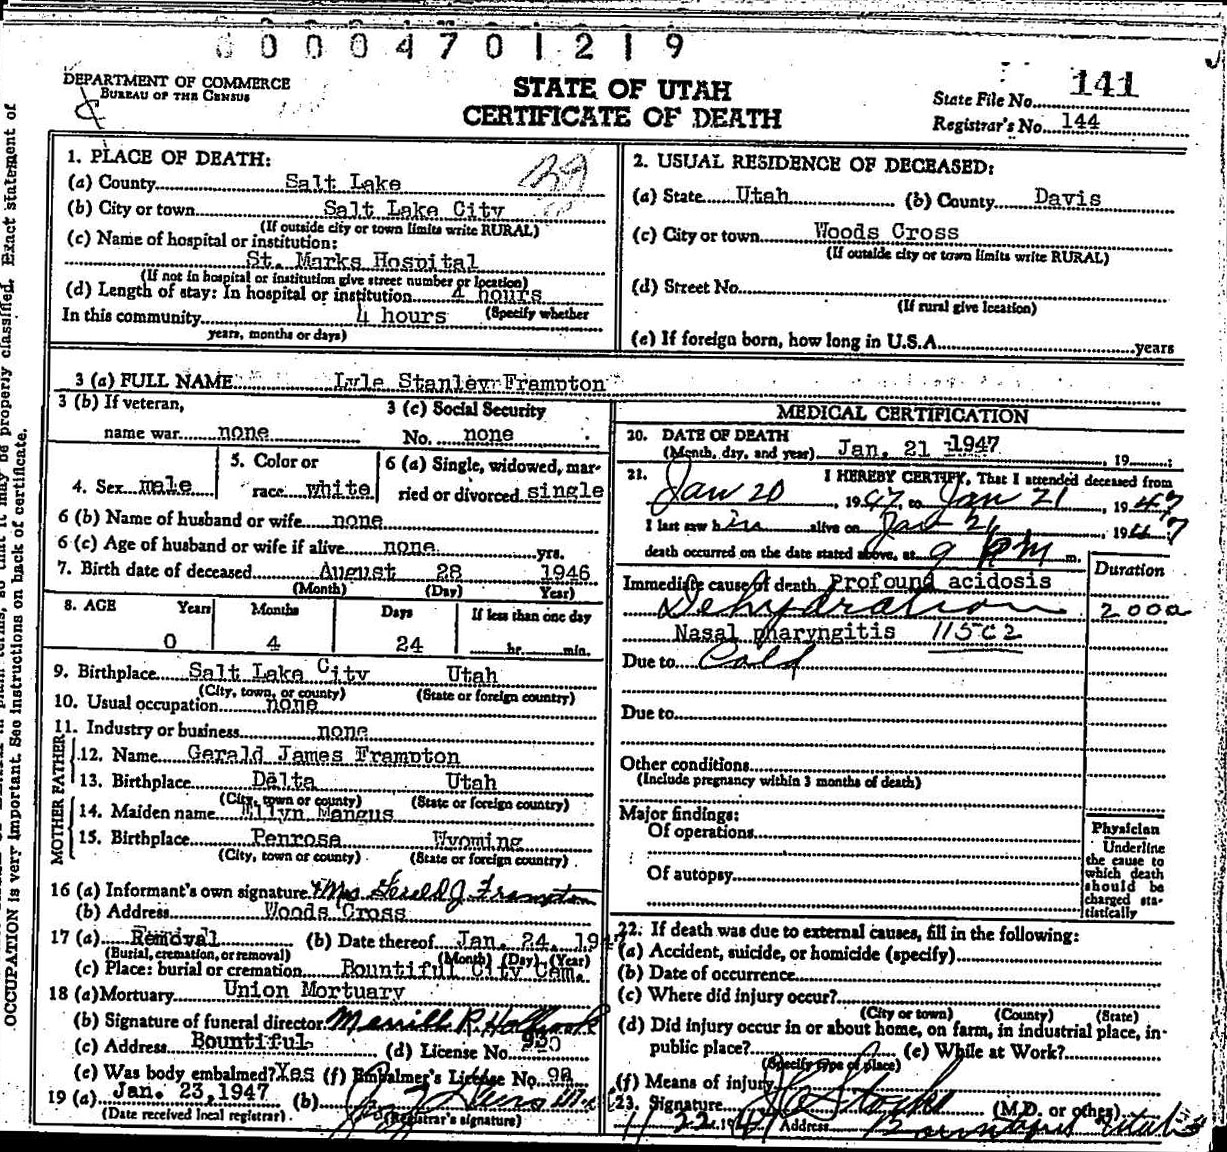 00004701219
DEPARTMENT OF COMMERCE
BUREAU OF THE CENSUS
STATE OF UTAH
CERTIFICATE OF DEATH
State File No. 141
Registrar's No. 144
1. PLACE OF DEATH:
(a) County Salt Lake
(b) City or town Salt Lake City
(If outside city or town limits write RURAL)
(c) Name of hospital or institution:
St. Marks Hospital
(If not in hospital or institution give street number or location)
(d) Length of stay: In hospital or institution 4 hours
(Specify whether
In this community 4 hours
years, months or days)
2. USUAL RESIDENCE OF DECEASED:
(a) State Utah (b) County Davis
(c) City or town Woods Cross
(If outside city or town limits write RURAL)
(d) Street No.
(If rural give location)
(e) If foreign born, how long in U.S.A. years
3 (a) FULL NAME Lyle Stanley Frampton
3 (b) If veteran,
name war none
3 (c) Social Security
No. none
4. Sex male
5. Color or
race white
6 (a) Single, widowed, mar-
ried or divorced single
6 (b) Name of husband or wife none
6 (c) Age of husband or wife if alive none yrs.
7. Birth date of deceased August 28 1946
(Month) (Day) Year)
8. AGE Years Months Days If less than one day
0 4 24 hr. min.
9. Birthplace Salt Lake City Utah
(City, town, or county) (State or foreign country)
10. Usual occupation none
11. Industry or business none
FATHER
12. Name Gerald James Frampton
13. Birthplace Delta Utah
(City, town or county) (State or foreign country)
MOTHER
14. Maiden name Ellyn Mangus
15. Birthplace Penrose Wyoming
(City, town or county) (State or foreign country)
16 (a) Informant's own signature Mrs Gerald J. Frampton
(b) Address Woods Cross
17 (a) Removal (b) Date thereof Jan. 24, 1947
(Burial, cremation, or removal) (Month) (Day) (Year)
(c) Place: burial or cremation Bountiful City Cem.
18 (a) Mortuary Union Mortuary
(b) Signature of funeral director Merrill R. Holbrook
(c) Address Bountiful (d) License No. 930
(e) Was body embalmed? Yes (f) Embalmer's License No. 98
19 (a) Jan. 23, 1947 (b)
(Date received local registrar) (Registrar's signature)
MEDICAL CERTIFICATION
20. DATE OF DEATH
(Month, day, and year) Jan. 21 1947, 19
21. I HEREBY CERTIFY, That I attended deceased from
Jan 20, 1947, to Jan 21, 1947
I last saw him alive on Jan 21, 1947
death occurred on the date stated above, at 9 PM m.
Duration
Immediate cause of death Profound acidosis
Dehydration
Nasal pharyngitis 115c2
Due to Cold
Due to
Other conditions
(Include pregnancy within 3 months of death)
Major findings:
Of operations
Of autopsy
Physician
Underline
the cause to
which death
should be
charged sta-
tistically
22. If death was due to external causes, fill in the following:
(a) Accident, suicide, or homicide (specify)
(b) Date of occurrence
(c) Where did injury occur?
(City or town) (County) (State)
(d) Did injury occur in or about home, on farm, in industrial place, in-
public place? (e) While at Work?
(Specify type of place)
(f) Means of injury
23. Signature (M.D. or other)
Address Bountiful Utah
OCCUPATION is very important. See instructions on back of certificate.
properly classified. Exact statement of